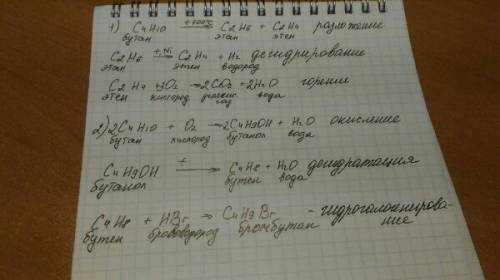 1) C4H10 +500°C → C2H6 + C2H4 разложение
бутан этан этен
C2H6 +Ni → C2H4 + H2 дегидрирование
этан этен водород
C2H4 +3O2 → 2CO2 + 2H2O горение
этен кислород углекис. газ вода
2) 2C4H10 + O2 → 2C4H9OH + H2O окисление
бутан кислород бутанол вода
C4H9OH t → C4H8 + H2O дегидратация
бутанол бутен вода
C4H8 + HBr → C4H9Br - гидрогалогенирова-
бутен бромоводород бромбутан ние